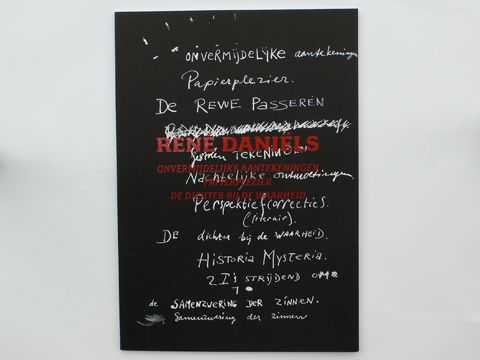 ONVERMIJDELIJKE aantekeningen
Papierplezier.
DE REWE PASSEREN
RENÉ DANIËLS
TEKENINGEN
ONVERMIJDELIJKE AANTEKENINGEN
Nachtelijke ontmoetingen
PAPIERPLEZIER
DE DICHTER BIJ DE WAARHEID
Perspektiefcorrecties.
(literair).
DE dichter bij de WAARHEID.
HISTORIA MYSTERIA.
2 I's STRIJDEND OM
1
de SAMENZWERING DER ZINNEN.
Samenzwering der zinnen